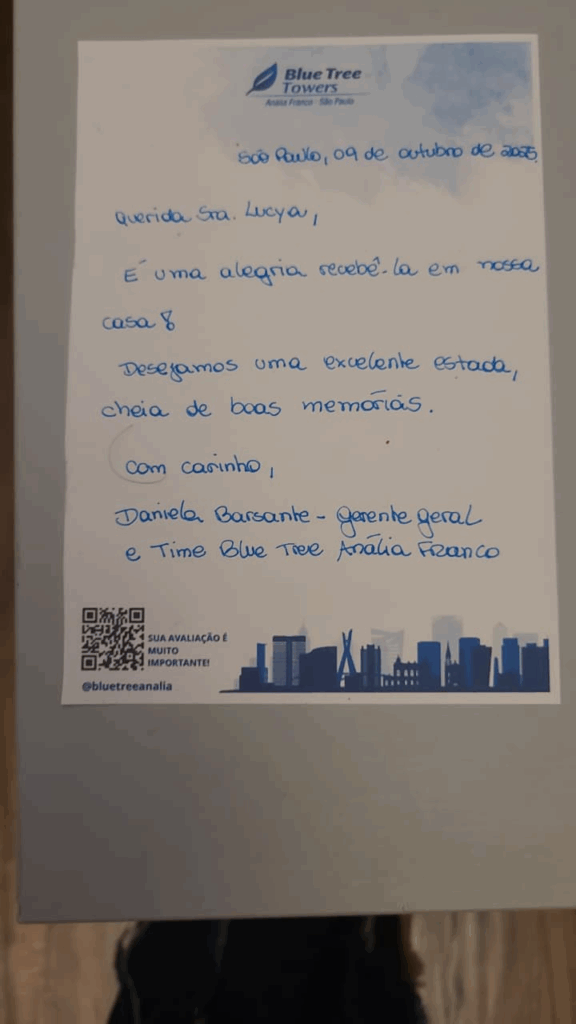 Blue Tree
Towers
Anália Franco - São Paulo
São Paulo, 09 de outubro de 2025.
Querida Sra. Lucya,
É uma alegria recebê-la em nossa
casa!
Desejamos uma excelente estada,
cheia de boas memórias.
Com carinho,
Daniela Barsante - gerente geral
e Time Blue Tree Anália Franco
SUA AVALIAÇÃO É
MUITO
IMPORTANTE!
@bluetreeanalia